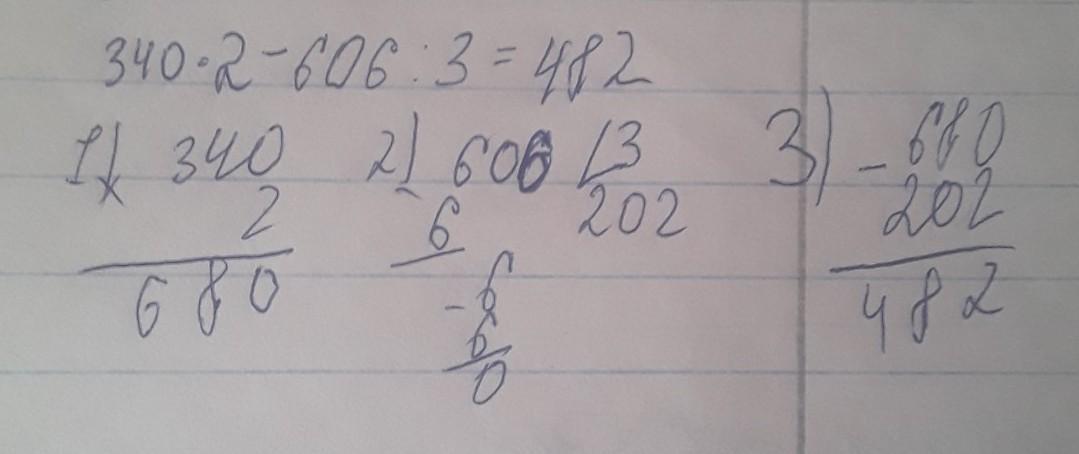 340·2-606:3=482
1) 340 2) 606 3 3) - 680
x 2 - 6 202 202
680 -6 482
6
0